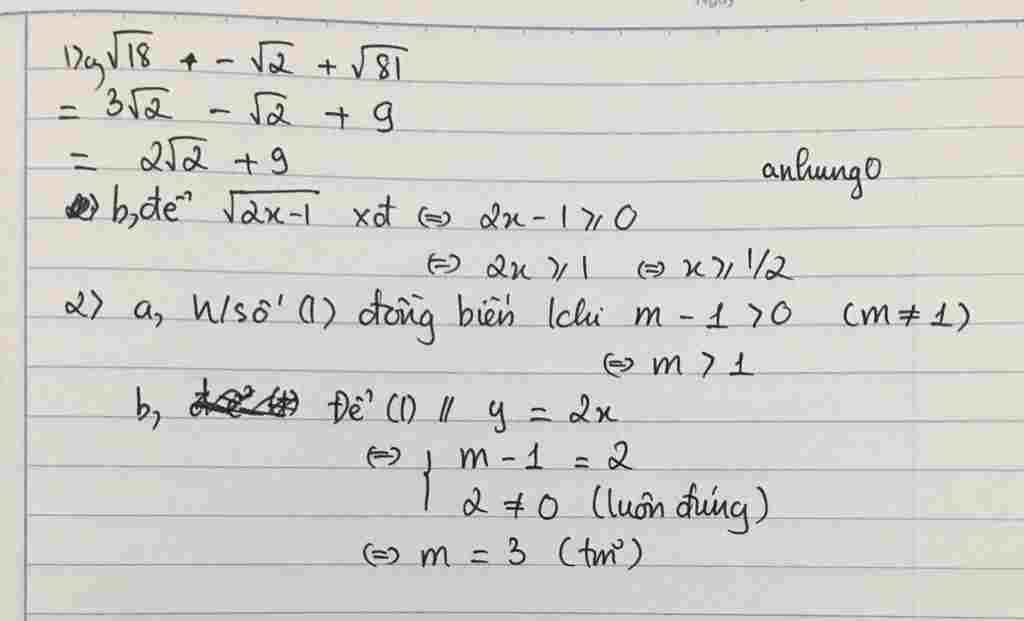 1) a, √18 + - √2 + √81
= 3√2 - √2 + 9
= 2√2 + 9
anhung0
b, để √2x-1 xđ ⇔ 2x - 1 ⩾ 0
⇔ 2x ⩾ 1 ⇔ x ⩾ 1/2
2) a, h/số (1) đồng biến khi m - 1 > 0 (m ≠ 1)
⇔ m > 1
b, Để (1) // y = 2x
⇔ { m - 1 = 2
2 ≠ 0 (luôn đúng)
⇔ m = 3 (tm)